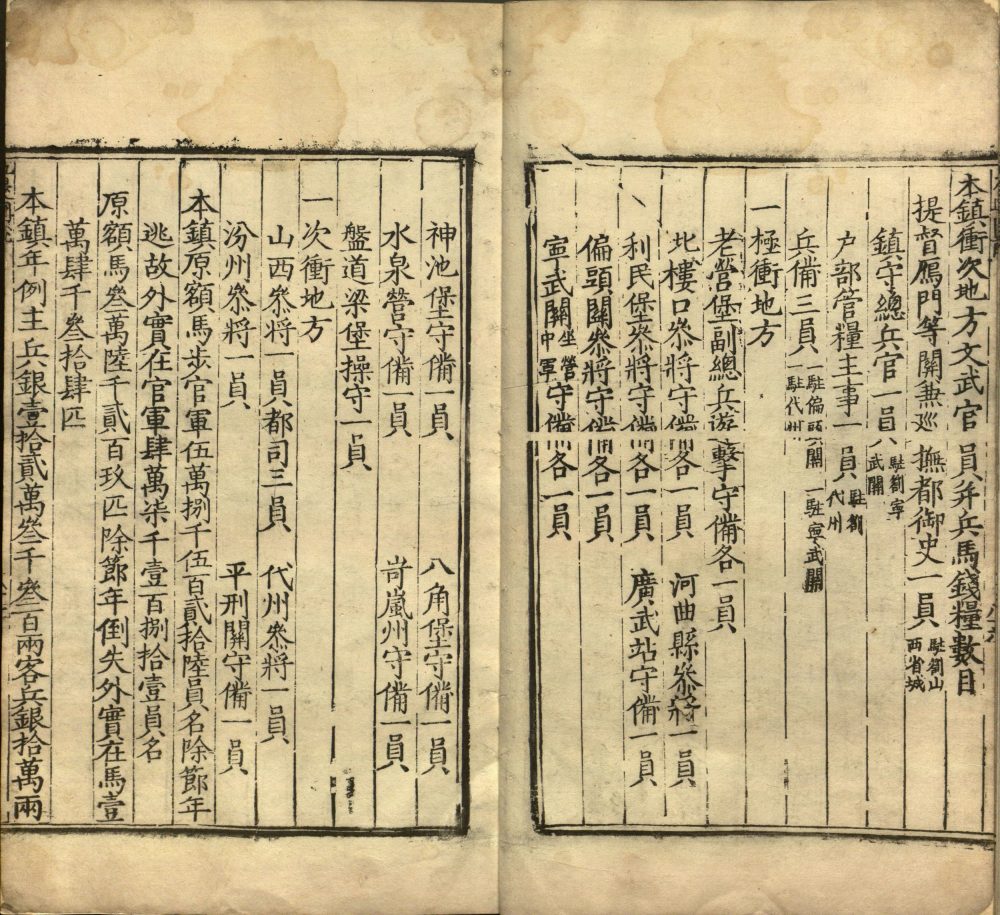 本鎮衝次地方文武官員并兵馬錢糧數目
提督鴈門等關兼巡撫都御史一員駐劄山西省城
鎮守總兵官一員駐劄寧武關
户部管糧主事一員駐劄代州
兵備三員一駐偏頭關一駐寧武關一駐代州
一極衝地方
老營堡副總兵遊擊守備各一員
北樓口叅將守備各一員 河曲縣叅將一員
利民堡叅將守備各一員 廣武站守備一員
偏頭關叅將守備各一員
寧武關坐營中軍守備各一員
神池堡守備一員 八角堡守備一員
水泉營守備一員 岢嵐州守備一員
盤道梁堡操守一員
一次衝地方
山西叅將一員都司三員 代州叅將一員
汾州叅將一員 平刑關守備一員
本鎮原額馬步官軍伍萬捌千伍百貳拾陸員名除節年
逃故外實在官軍肆萬柒千壹百捌拾壹員名
原額馬叄萬陸千貳百玖匹除節年倒失外實在馬壹
萬肆千叄拾肆匹
本鎮年例主兵銀壹拾貳萬叄千叄百兩客兵銀拾萬兩